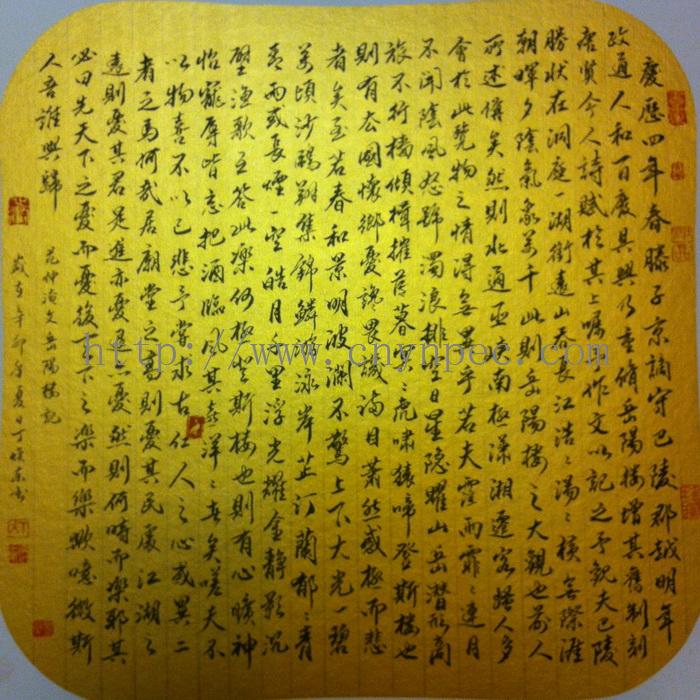 慶歷四年春滕子京謫守巴陵郡越明年
政通人和百廢具興乃重脩岳陽樓增其舊制刻
唐賢今人詩賦於其上囑予作文以記之予觀夫巴陵
勝狀在洞庭一湖銜遠山吞長江浩浩湯湯橫無際涯
朝暉夕陰氣象萬千此則岳陽樓之大觀也前人
所述備矣然則北通巫峽南極瀟湘遷客騷人多
會於此覽物之情得無異乎若夫霪雨霏霏連月
不開陰風怒號濁浪排空日星隱曜山岳潛形商
旅不行檣傾楫摧薄暮冥冥虎嘯猿啼登斯樓也
則有去國懷鄉憂讒畏譏滿目蕭然感極而悲
者矣至若春和景明波瀾不驚上下天光一碧
萬頃沙鷗翔集錦鱗游泳岸芷汀蘭郁郁青
青而或長煙一空皓月千里浮光耀金靜影沉
璧漁歌互答此樂何極登斯樓也則有心曠神
怡寵辱皆忘把酒臨風其喜洋洋者矣嗟夫不
以物喜不以己悲予嘗求古仁人之心或異二
者之為何哉居廟堂之高則憂其民處江湖之
遠則憂其君是進亦憂退亦憂然則何時而樂耶其
必曰先天下之憂而憂後天下之樂而樂歟噫微斯
人吾誰與歸
范仲淹文岳陽樓記
歲在辛卯年夏日丁東書
http://www.cnynpec.com